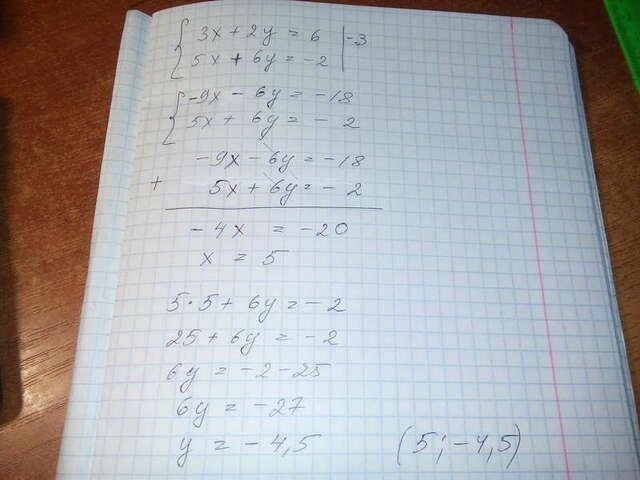 { 3x + 2y = 6 | -3
5x + 6y = -2 |
{ -9x - 6y = -18
5x + 6y = - 2
-9x - 6y = -18
+ 5x + 6y = - 2
- 4x = -20
x = 5
5·5 + 6y = - 2
25 + 6y = -2
6y = -2 - 25
6y = -27
y = - 4,5 (5; -4,5)